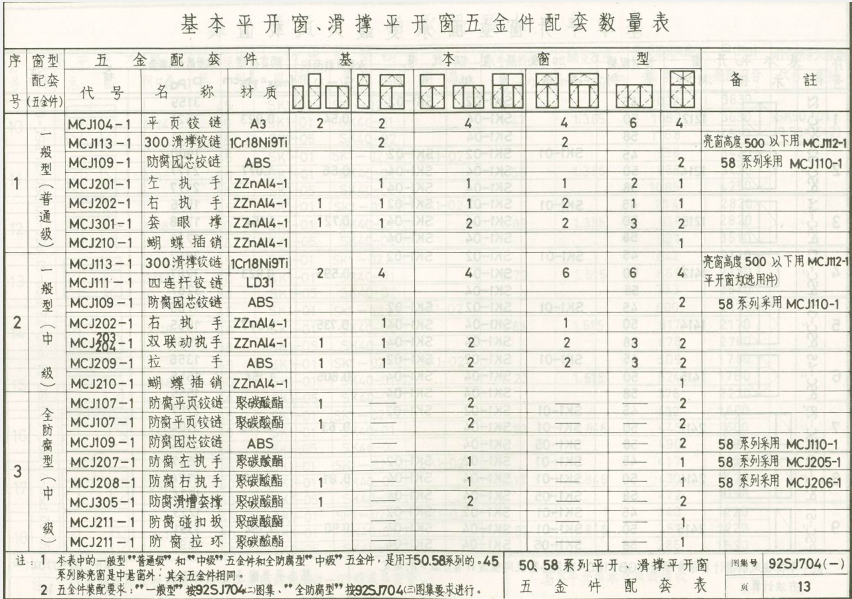 基本平开窗、滑撑平开窗五金件配套数量表
序号 窗型配套(五金件) 五金配套件 基本窗型 备註
代号 名称 材质
1 一般型(普通级)
MCJ104-1 平页铰链 A3 2 2 4 4 6 4
MCJ113-1 300滑撑铰链 1Cr18Ni9Ti 2 2 亮窗高度500以下用MCJ112-1
MCJ109-1 防腐园芯铰链 ABS 2 58系列采用MCJ110-1
MCJ201-1 左执手 ZZnAl4-1 1 1 1 2 1
MCJ202-1 右执手 ZZnAl4-1 1 1 1 2 1 1
MCJ301-1 套眼撑 ZZnAl4-1 1 1 2 2 3 2
MCJ210-1 蝴蝶插销 ZZnAl4-1 1
2 一般型(中级)
MCJ113-1 300滑撑铰链 1Cr18Ni9Ti 亮窗高度500以下用MCJ112-1
2 4 4 6 6 4
MCJ111-1 四连杆铰链 LD31 平开窗
MCJ109-1 防腐园芯铰链 ABS 2 58系列采用MCJ110-1
MCJ202-1 右执手 ZZnAl4-1 1 1
MCJ203 204-1 双联动执手 ZZnAl4-1 1 1 2 2 3 2
MCJ209-1 拉手 ABS 1 1 2 2 3 2
MCJ210-1 蝴蝶插销 ZZnAl4-1 1
3 全防腐型(中级)
MCJ107-1 防腐平页铰链 聚碳酸酯 1 — 2 — — 2
MCJ107-1 防腐平页铰链 聚碳酸酯 1 — 2 — — 2
MCJ109-1 防腐园芯铰链 ABS — — — 2 58系列采用MCJ110-1
MCJ207-1 防腐左执手 聚碳酸酯 — 1 — — 1 58系列采用MCJ205-1
MCJ208-1 防腐右执手 聚碳酸酯 1 — 1 — — 1 58系列采用MCJ206-1
MCJ305-1 防腐滑槽套撑 聚碳酸酯 1 — 2 — — 2
MCJ211-1 防腐碰扣板 聚碳酸酯 — — — 1
MCJ211-1 防腐拉环 聚碳酸酯 — — — 1
注:1 本表中的一般型"普通级"和"中级"五金件和全防腐型"中级"五金件,是用于50.58系列的。45
系列除亮窗是中悬窗外,其余五金件相同。
2 五金件装配要求:"一般型"按92SJ704(二)图集、"全防腐型"按92SJ704(三)图集要求进行。
50、58系列平开、滑撑平开窗
五金件配套表
图集号 92SJ704(一)
页 13